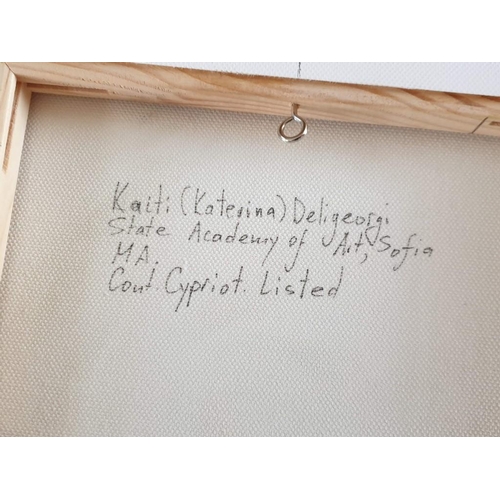 Kaiti (Katerina) Deligeorgi
State Academy of Art, Sofia
MA.
Cont. Cypriot. Listed